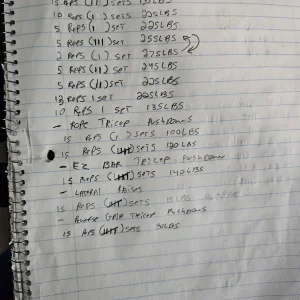 15 REPS (11) SETS 135LBS
10 REPS (1) SETS 225LBS
5 REPS (1) SET 225LBS
5 REPS (111) SET 255LBS
2 REPS (1) SET 275LBS
5 REPS (11) SET 245LBS
5 REPS (11) SET 225LBS
REPS 1 SET 225LBS
10 REPS 1 SET 135LBS
- ROPE TRICEP PUSHDOWNS
15 REPS (1) SETS 100LBS
15 REPS SETS 120LBS
- EZ BAR TRICEP PUSHDOWN
15 REPS SETS 140LBS
- LATERAL RAISES
15 REPS SETS 15LBS
- REVERSE GRIP TRICEP PUSHDOWNS
15 REPS SETS LBS